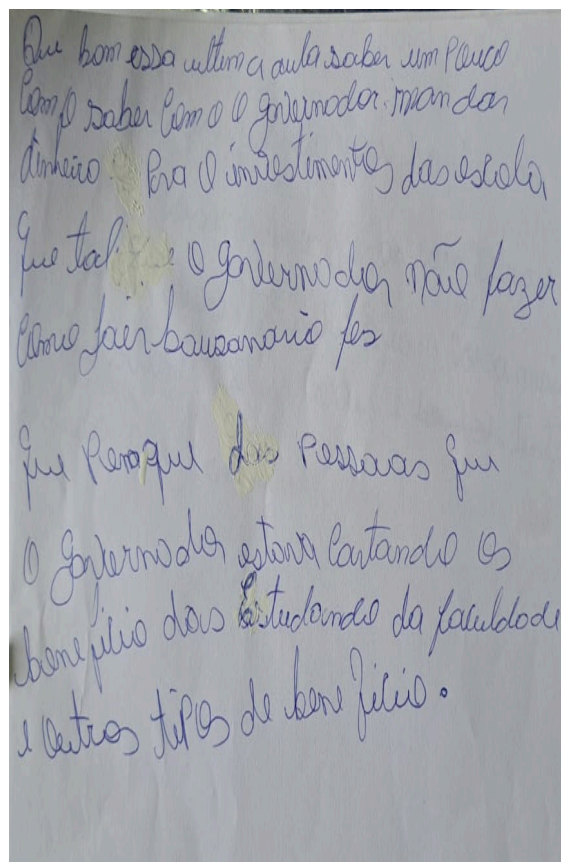 Que bom essa ultima aula saber um pouco
como saber como o governador mandar
dinheiro para o investimentos das escola
Que tal o governador não fazer
como jair bousanario fez
que das pessoas que
o governador estava cortando os
beneficio das Estudando da faculdade
e outros tipos de beneficio.